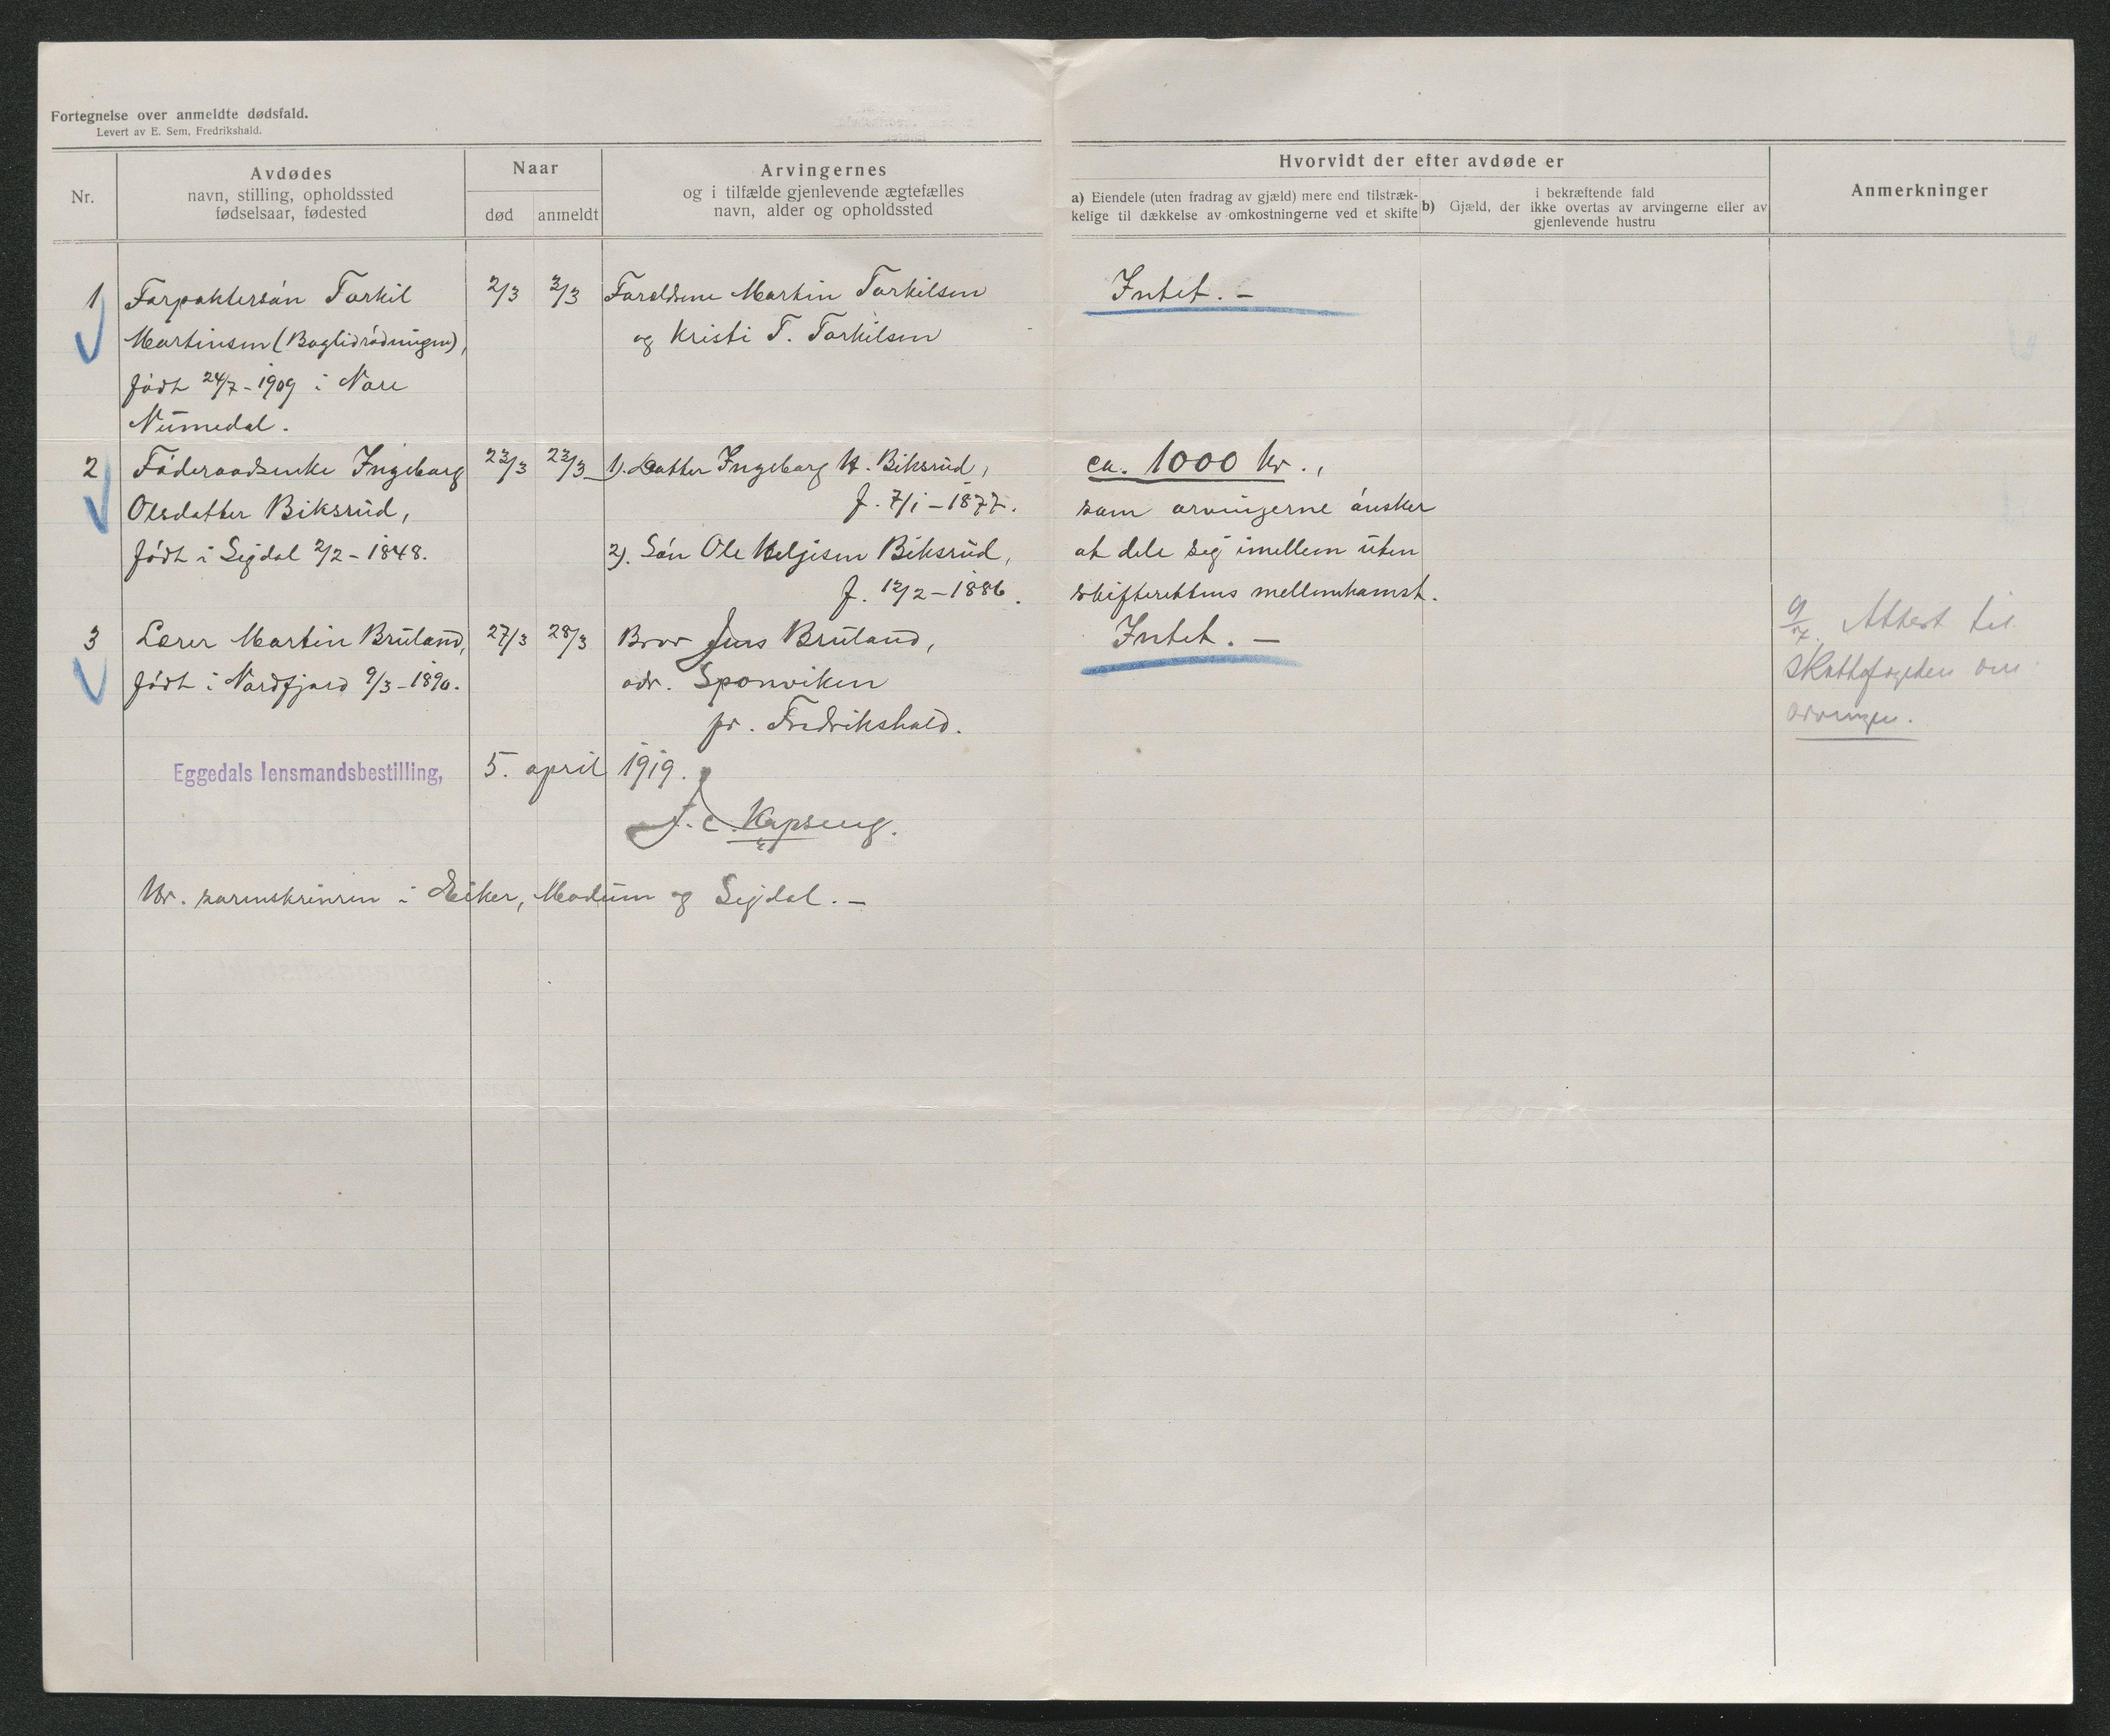 Fortegnelse over anmeldte dødsfald.
Levert av E. Sem, Fredrikshald.
Nr.
Avdødes
navn, stilling, opholdssted
fødselsaar, fødested
Naar
død
anmeldt
Arvingernes
og i tilfælde gjenlevende ægtefælles
navn, alder og opholdssted
Hvorvidt der efter avdøde er
a) Eiendele (uten fradrag av gjæld) mere end tilstræk-
kelige til dækkelse av omkostningerne ved et skifte
i bekræftende fald
b) Gjæld, der ikke overtas av arvingerne eller av
gjenlevende hustru
Anmerkninger
1
Forpaktersøn Torkil
Martinsen (Baglidrødningen),
født 24/7 - 1909 i Nore
Numedal.
2/3
3/3
Forældrene Martin Torkilsen
og Kristi T. Torkilsen
Intet. -
2
Føderaadsenke Ingeborg
Olsdatter Biksrud,
født i Sigdal 2/2 - 1848.
22/3
22/3
1). Datter Ingeborg H. Biksrud,
f. 7/1 - 1877.
2). Søn Ole Helgisen Biksrud,
f. 12/2 - 1886.
ca. 1000 kr.,
som arvingerne ønsker
at dele sig imellem uten
skifterettens mellemkomst.
3
Lærer Martin Bruland,
født i Nordfjord 9/3 - 1890.
27/3
28/3
Bror Jens Bruland,
adr. Sponviken
pr. Fredrikshald.
Intet. -
9/7. Attest til
Skattefogden om
arvinger.
Eggedals lensmandsbestilling, 5. april 1919.
J. C. Kopseng.
Hr. sorenskriveren i Eiker, Modum og Sigdal. -